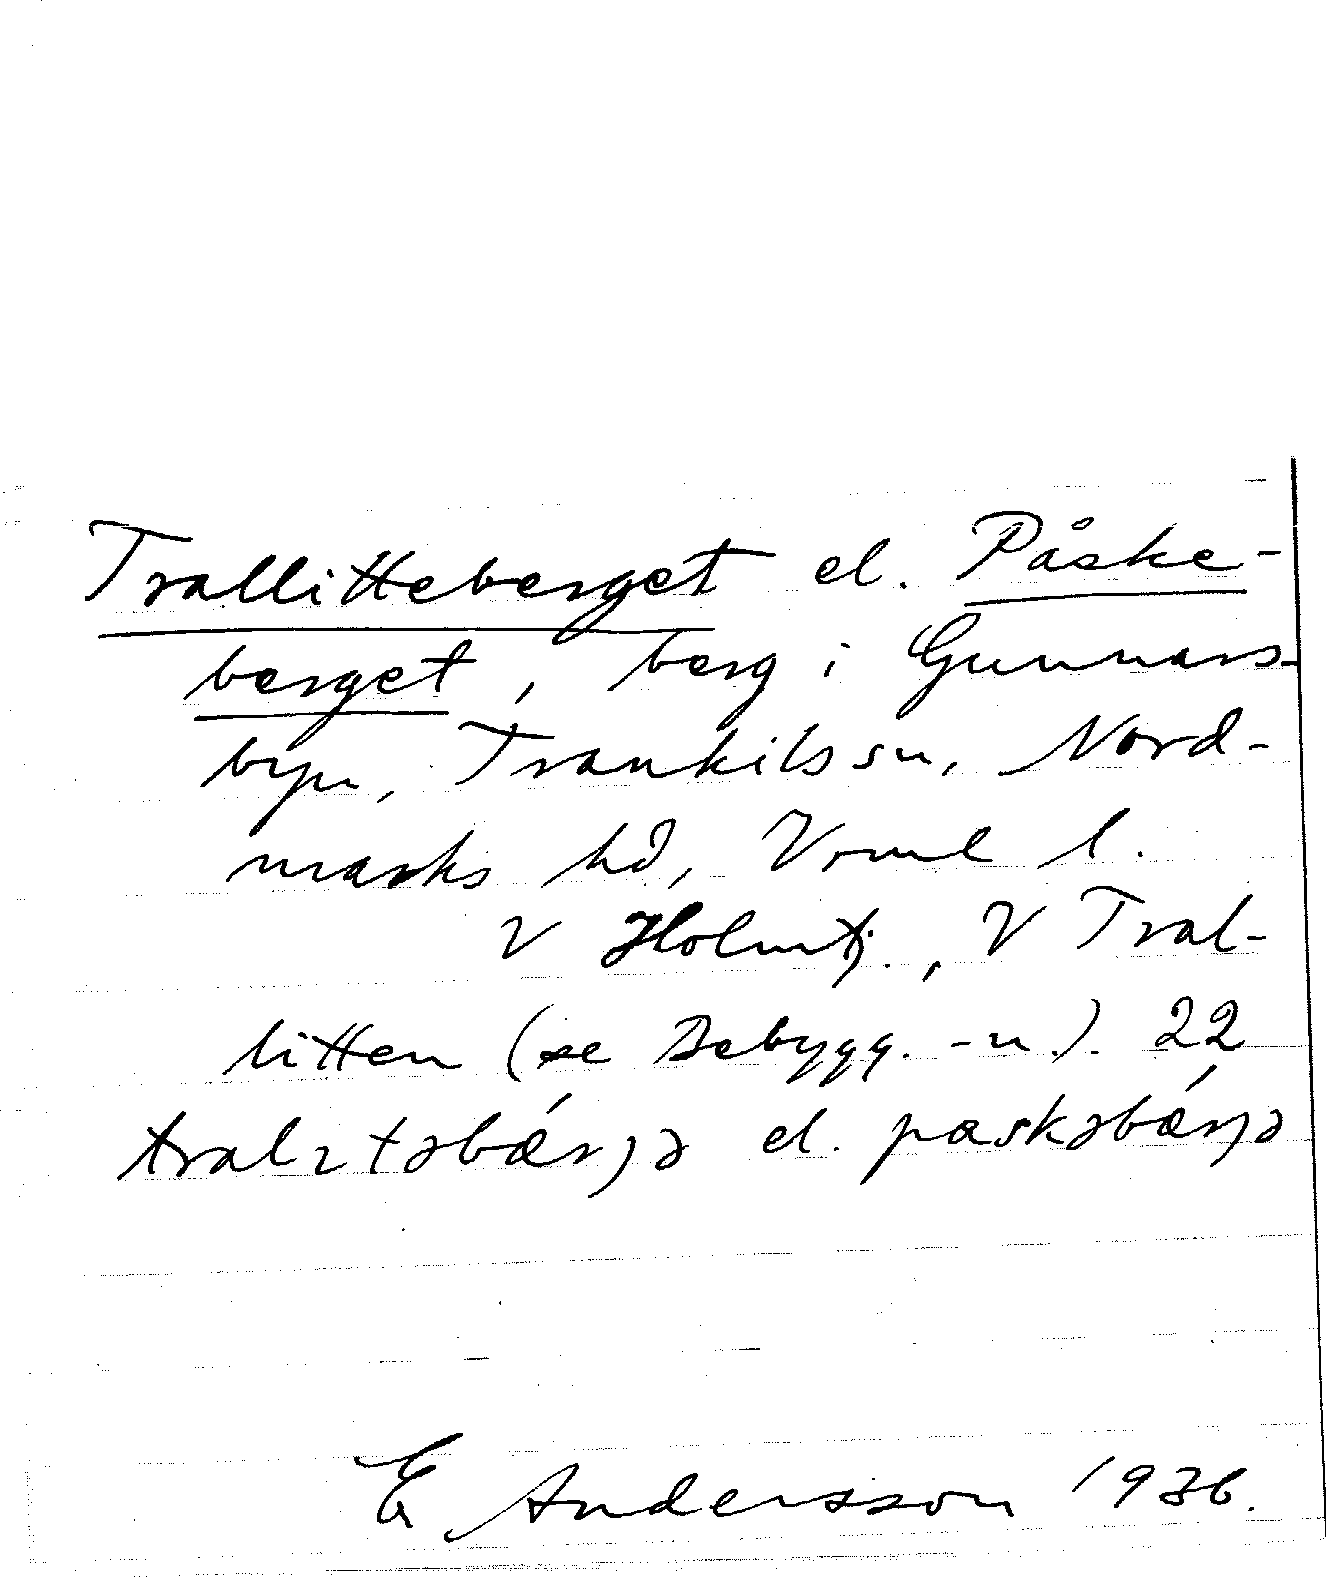 Trallitteberget el. Påske-
berget, berg i Gunnars-
byn, Trankils sn, Nord-
marks hd, Vrml l.
V Holmtj., V Tral-
litten (se Bebygg.-n.). 22
tralıtəbǽrjə el. påskəbǽrjə
E Andersson 1936.